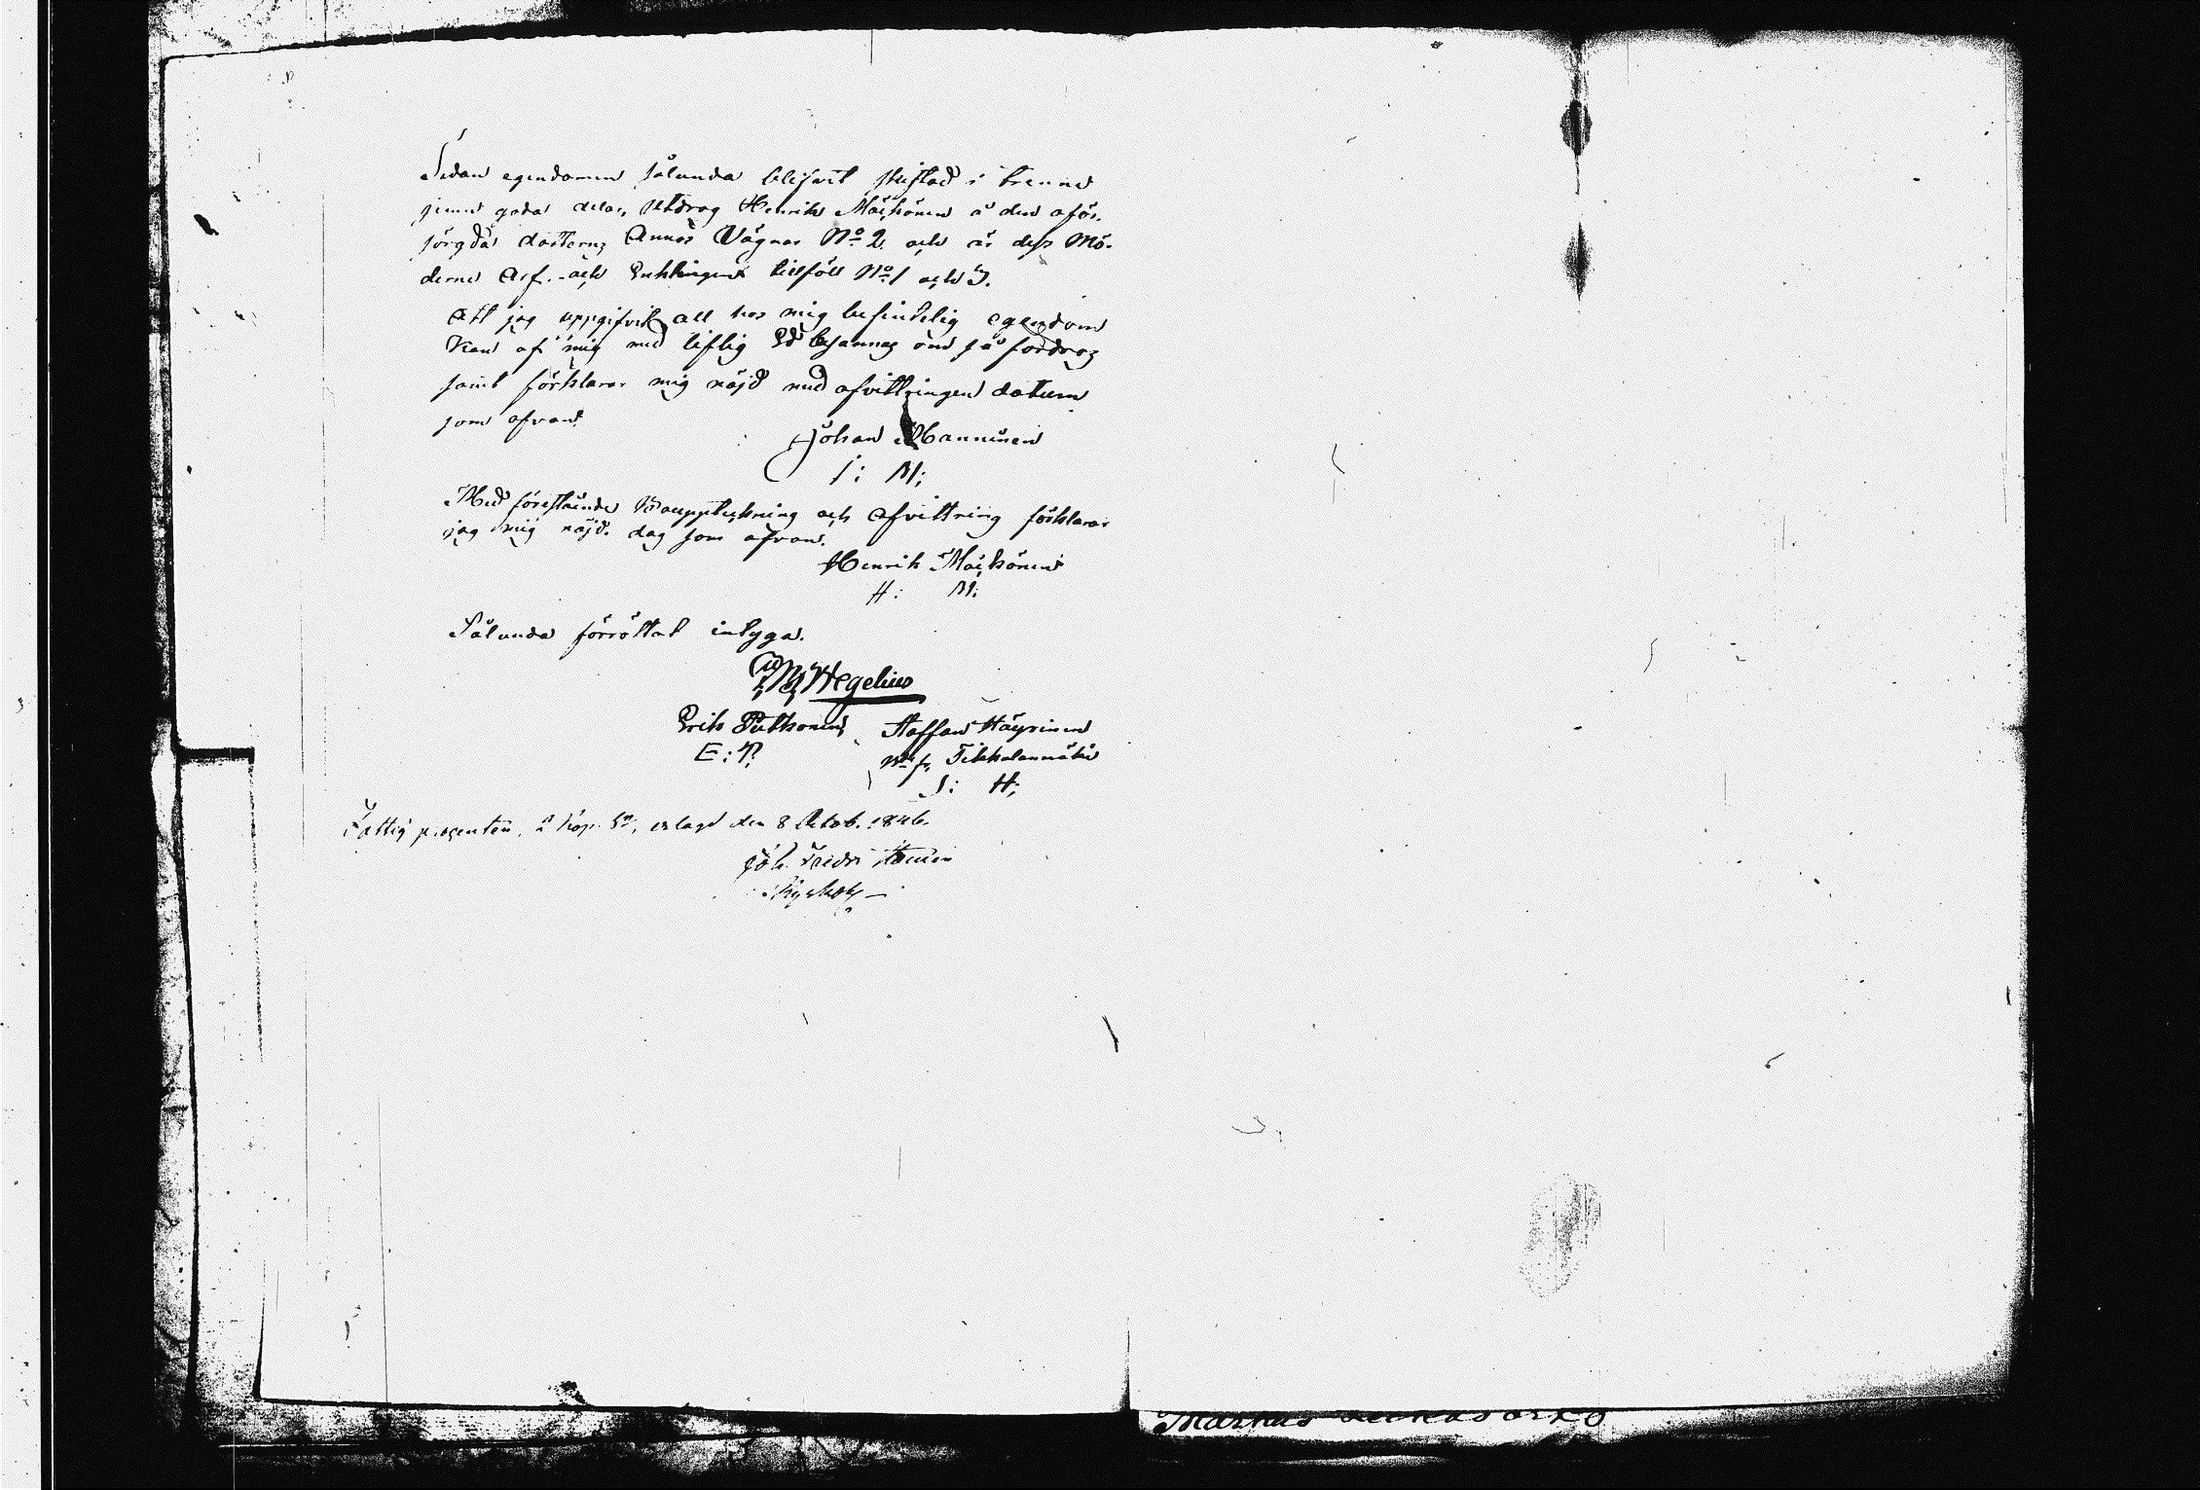 Sedan egendomen sålunda blifvit skiftad i trenne
jemn goda delar, utdrog Henrik Mäkönen å den aflör-
sörgda dotterns Annas Vägnar No 2 och är dess Mö-
derne Arf. och Enklingen tillföll No 1 och 3.
Att jag uppgifvit all hos mig befindtlig egendom
kan af mig med liflig Ed besannas om så fordras
samt förklarar mig nöjd med afvittringen datum
som ofvan
Johan Manninen
I: M:
Med förestående Bouppteckning och afvittring förklarar
jag mig nöjd. dag som ofvan.
Henrik Mäkönen
H: M:
Sålunda förrättat intyga.
Wegelius
Erik Puthonen Staffan Häyrinen
E: P: fr. Tikkalanmäki
S: H:
Fattig procenten, 2 kop. Sr, erlagd den 8 Octob. 1846.
Joh. Fredr.
Markus